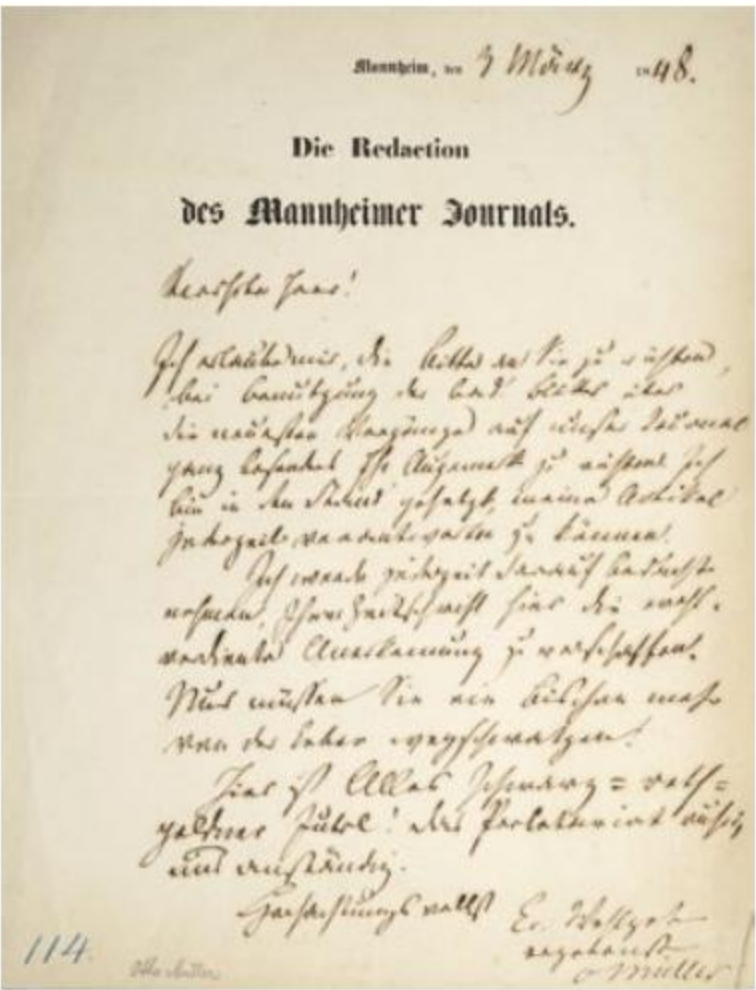 Mannheim, den 3 März 1848.
Die Redaction
des Mannheimer Journals.
Verehrter Herr!
Ich erlaube mir, die Bitte an Sie zu richten,
bei Benützung der bad. Blätter über
die neuesten Vorgänge auf unser Journal
ganz besonders Ihr Augenmerk zu richten. Ich
bin in den Stand gesetzt, meine Artikel
jederzeit verantworten zu können.
Ich werde jederzeit darauf Bedacht
nehmen, Ihrer Zeitschrift hier die wohl-
verdiente Anerkennung zu verschaffen.
Nur müssen Sie ein bischen mehr
von der Leber wegschwatzen!
Hier ist Alles Schwarz=roth=
goldner Jubel! Das Proletariat ruhig
und anständig.
Hochachtungsvollst
Ew. Wohlgeb
ergebenst
Müller
114.
Otto Müller